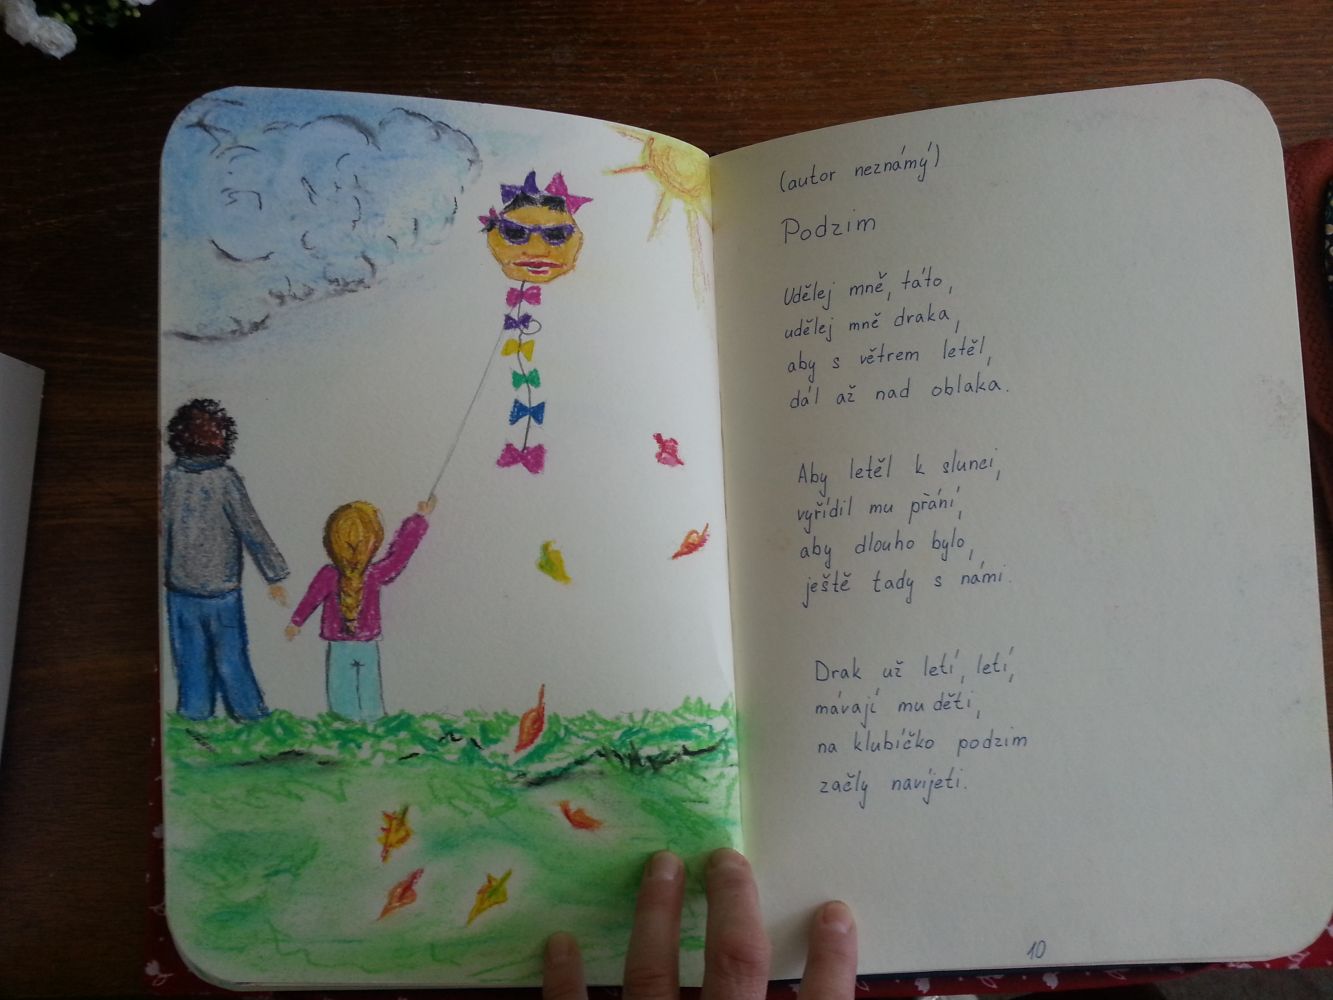 (autor neznámý)
Podzim
Udělej mně, táto,
udělej mně draka,
aby s větrem letěl,
dál až nad oblaka.
Aby letěl k slunci,
vyřídil mu přání,
aby dlouho bylo,
ještě tady s námi.
Drak už letí, letí,
mávají mu děti,
na klubíčko podzim
začly navíjeti.
10